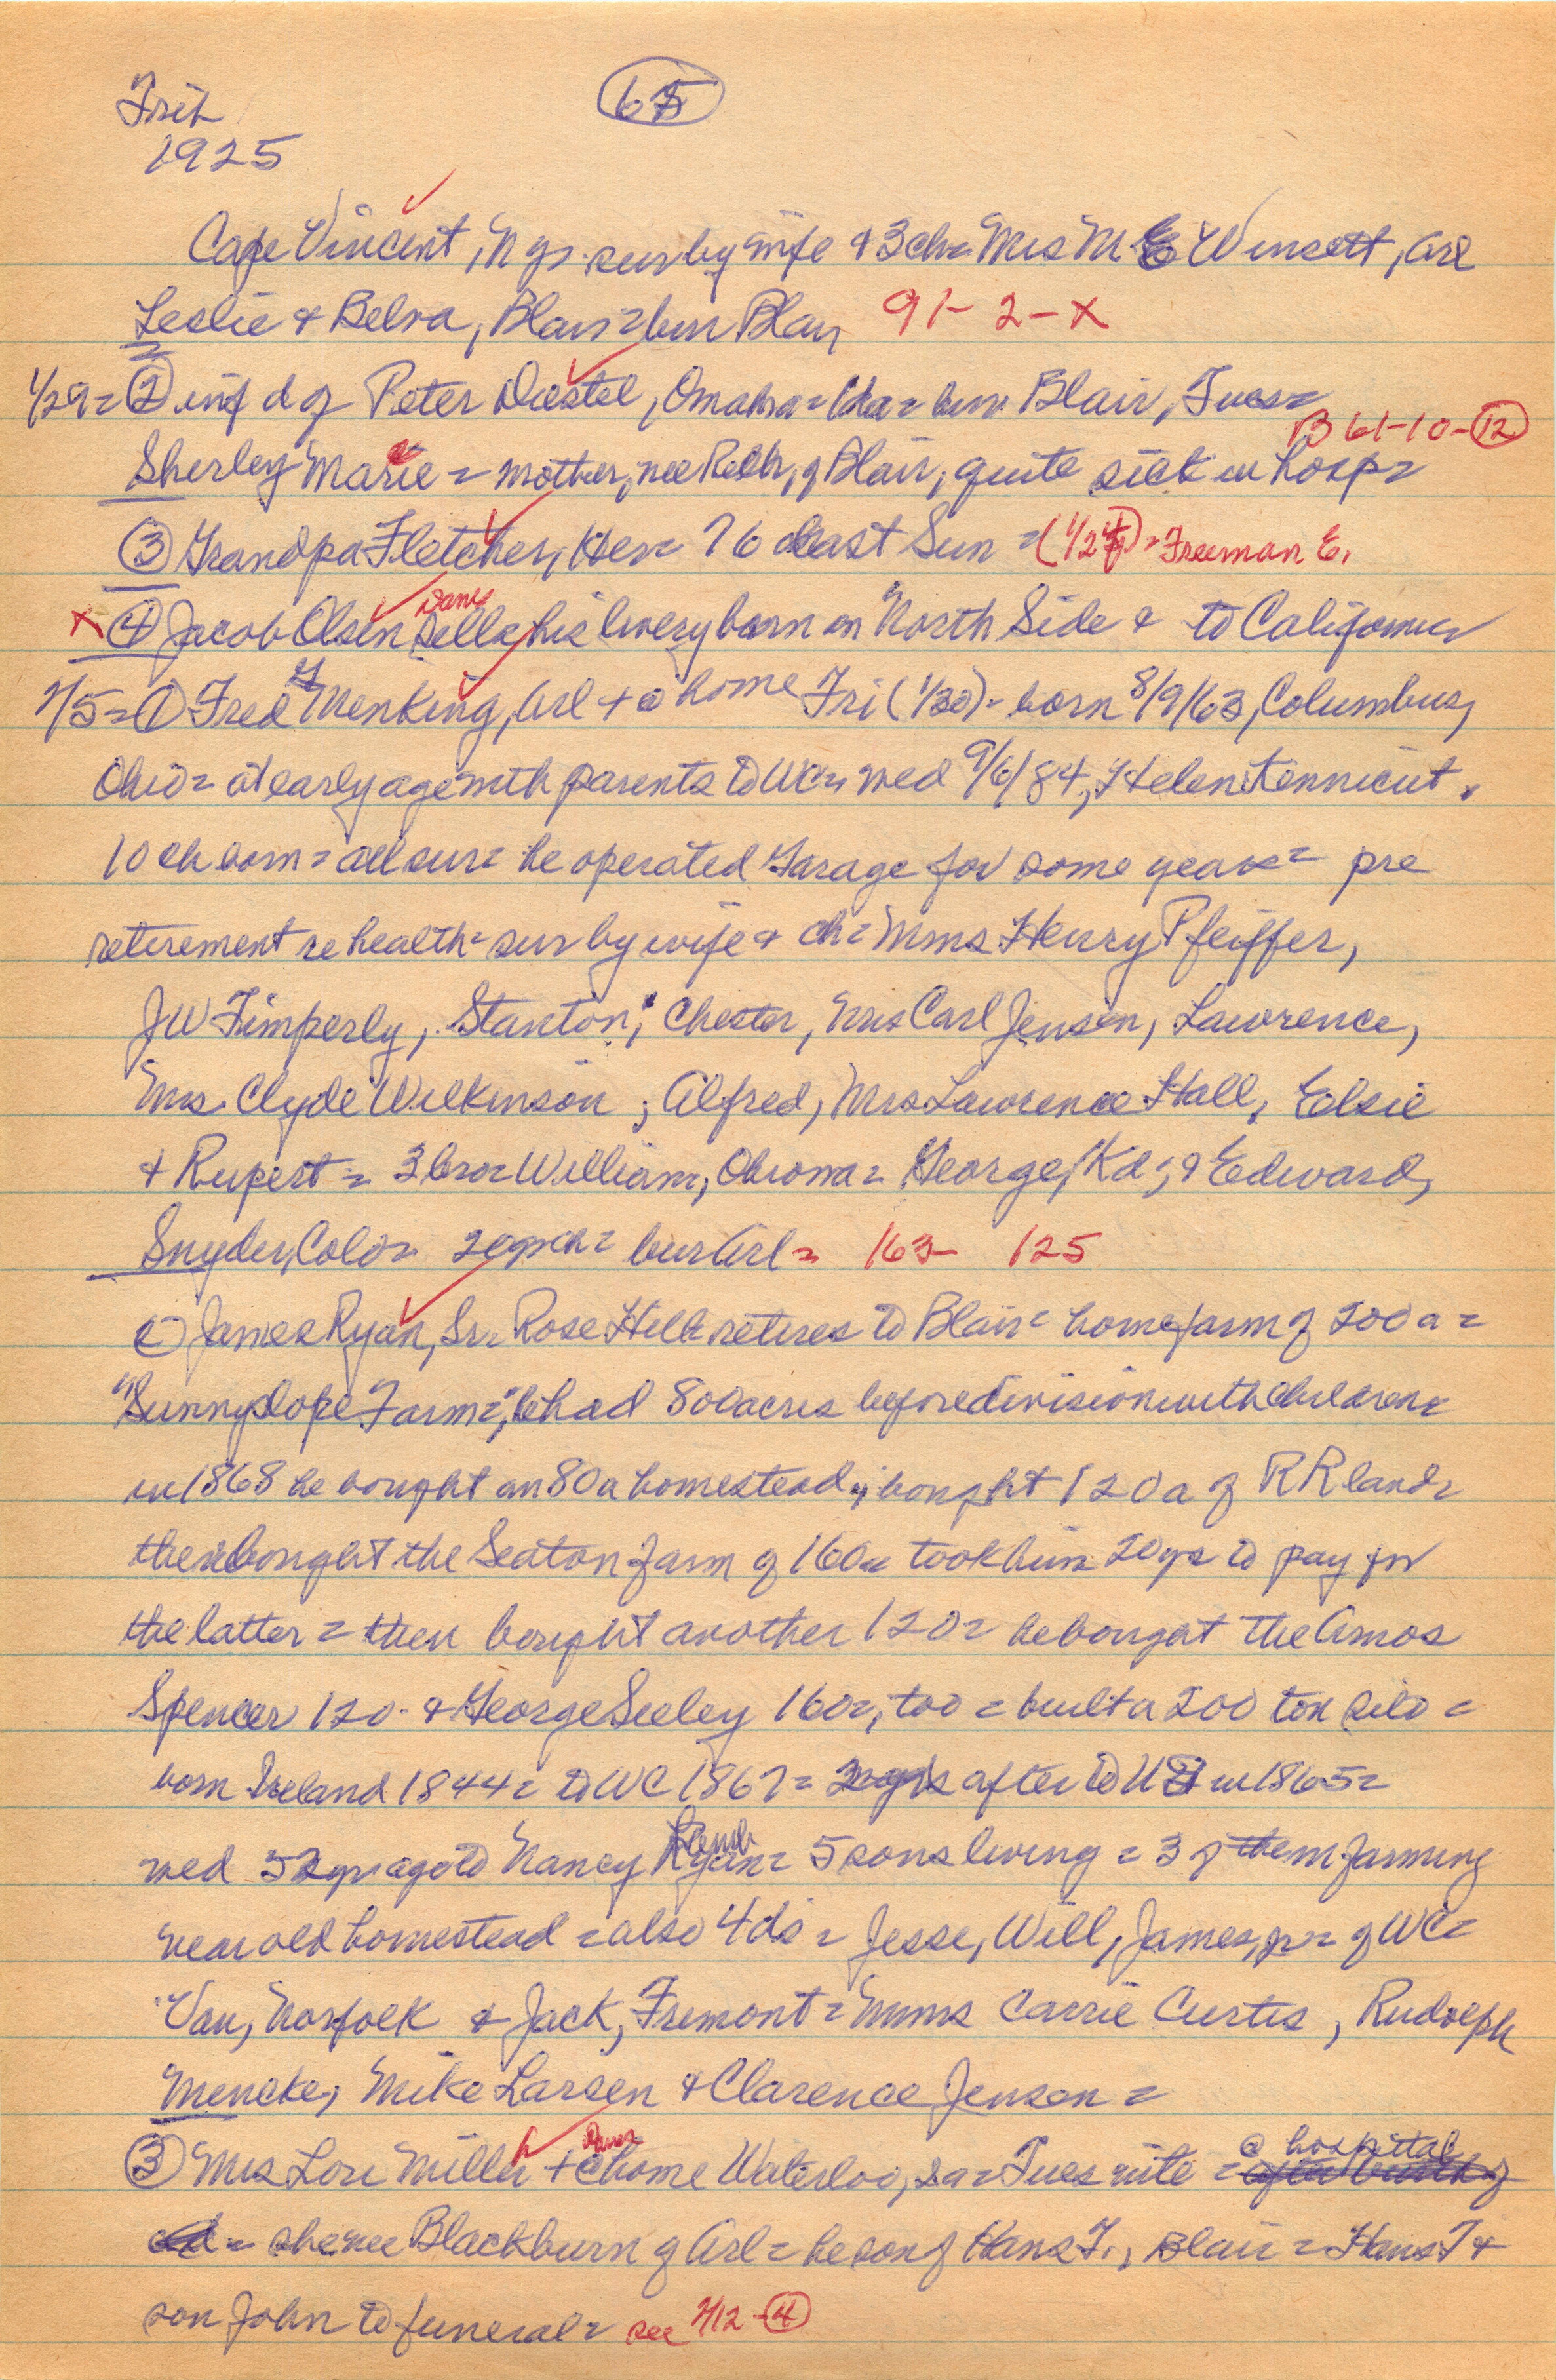 Trib
65
1925
Cape Vincent, N Y = sur by wife & 3 ch = Mrs M E Winsett, Arl
Leslie & Belva, Blair = bur Blair 91-2-X
1/29 = ② inf d of Peter Diestel, Omaha = bur Blair, Tues =
B 61-10-⑫
Sherley Marie = mother, nee of Blair, quite sick in hosp =
③ Grandpa Fletcher, Her = 76 last Sun = (1/24) = Freeman E.
X ④ Jacob Olsen Dane sells his livery barn on North Side & to California
2/5 = ① Fred Menking, Arl + @ home Fri (1/30) = born 8/9/63, Columbus,
Ohio = at early age with parents to WC = wed 9/6/84, Helen Kennicut.
10 ch born = all sur = he operated Garage for some years = pre
retirement re health = sur by wife & ch = Mms Henry Pfeiffer,
JW Timperly, Stanton; Chester, Mrs Carl Jensen, Lawrence,
Mrs Clyde Wilkinson; Alfred, Mrs Lawrence Hall, Elsie
& Rupert = 3 bro = William, = George, & Edward,
Snyder, Colo = 20 gch = bur Arl = 163- 125
② James Ryan, Sr = Rose Hill retires to Blair = home farm of 200 a =
"Sunnyslope Farm", he had 800 acres before division with children =
in 1868 he bought an 80a homestead; bought 120a of RR land =
then bought the Seaton farm of 160 = took him 20 yrs to pay for
the latter = then bought another 120 = he bought the Amos
Spencer 120 & George Seeley 160 =, too = built a 200 ton silo =
born Ireland 1844 = to WC 1867 = 2 yrs after to US in 1865 =
wed 52 yrs ago to Nancy = 5 sons living = 3 of them farming
near old homestead = also 4 ds = Jesse, Will, James, jr = of WC =
Van, Norfolk & Jack, Fremont = Mms Carrie Curtis, Rudolph
Mencke, Mike Larsen & Clarence Jensen =
③ Mrs Lore Miller + @ home Waterloo, Ia = Tues nite = @ hospital
= she nee Blackburn of Arl = he son of Hans T., Blair = Hans T &
son John to funeral = see 2/12-④